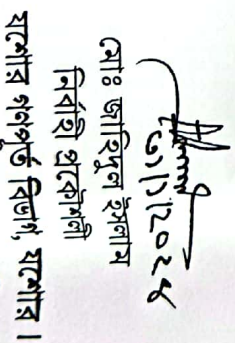 মোঃ জাহিদুল ইসলাম
নির্বাহী প্রকৌশলী
যশোর গণপূর্ত বিভাগ, যশোর।